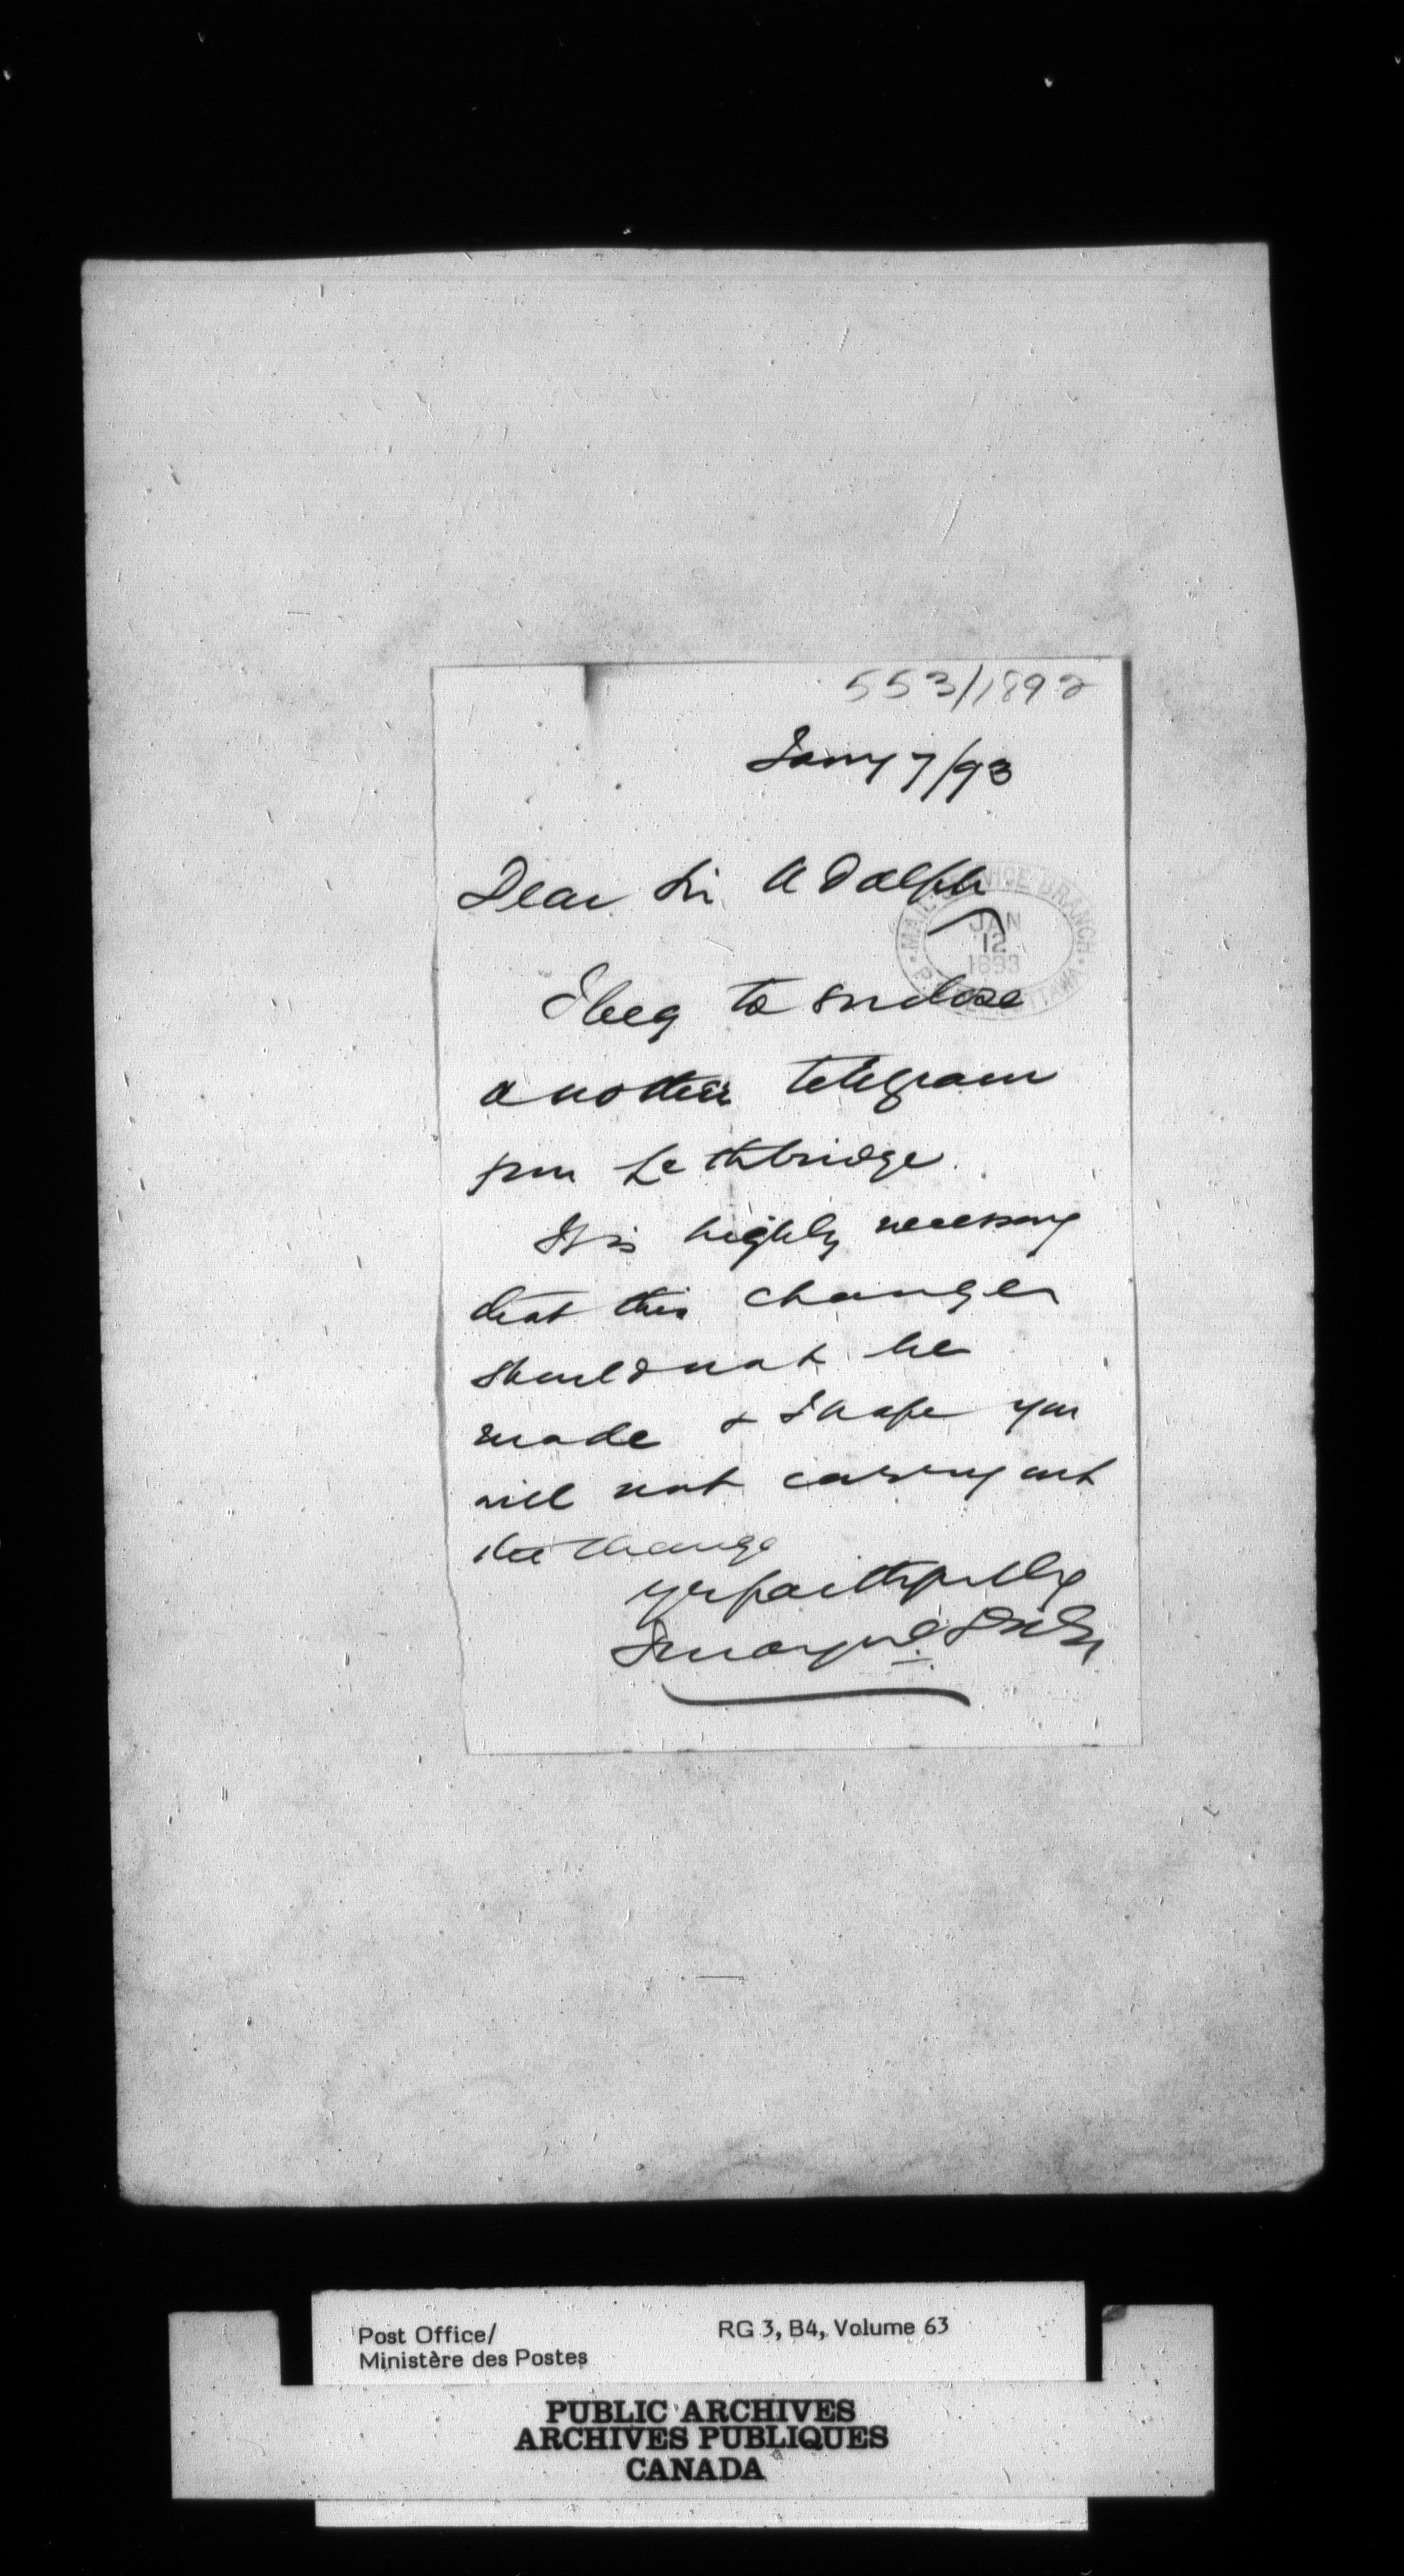 553/1892
Jany 7/93
Dear Sir Adolph
MAIL SERVICE BRANCH
JAN
12
1893
OTTAWA
I beg to enclose
another telegram
from Lethbridge.
It is highly necessary
that this change
should not be
made & I hope you
will not carry out
the change
yrs faithfully
Post Office/
Ministère des Postes
RG 3, B4, Volume 63
PUBLIC ARCHIVES
ARCHIVES PUBLIQUES
CANADA